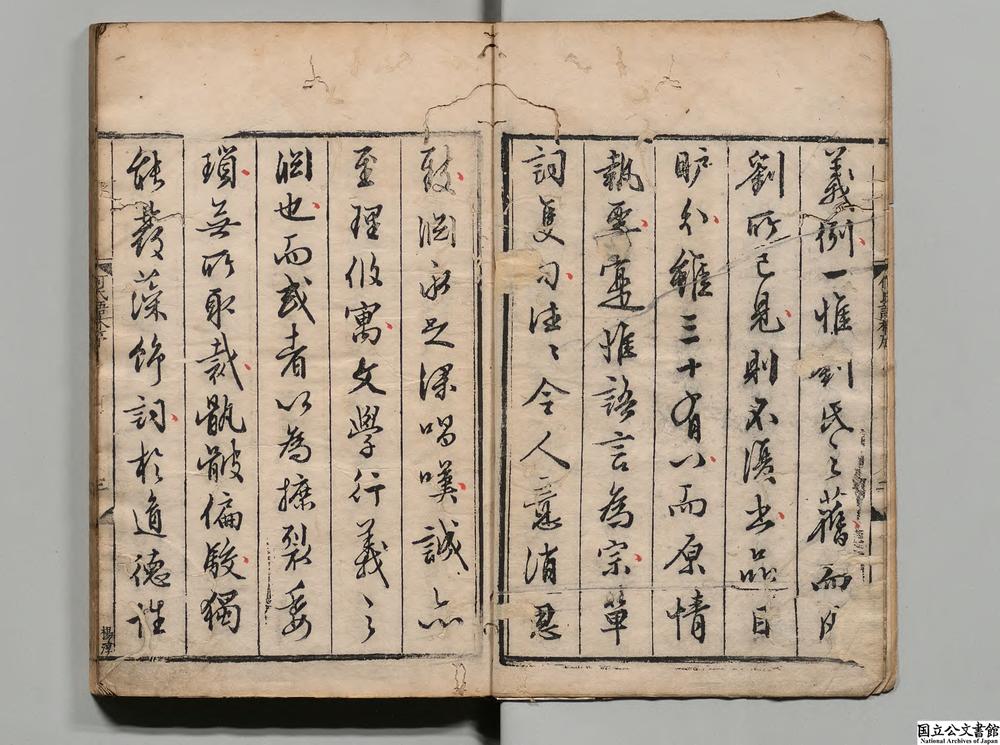 義例一惟劉氏之舊而凡
劉所已見則不復書品目
臚分雖三十有八而原情
執要寔惟語言為宗單
詞隻句往〻令人意消思
致淵永足深唱嘆誠亦
至理攸寓文學行義之
淵也而或者以為摭裂委
瑣無所取裁骩骳偏駮獨
能發藻飾詞於道德性
何氏語林序
三
楊淳
国立公文書館
National Archives of Japan